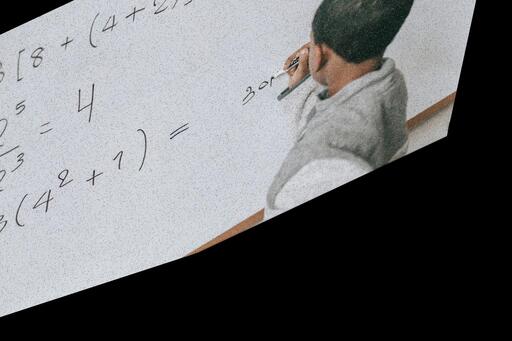 3[8+(4+2)
2⁵/2³ = 4
3(4²+7) =
30